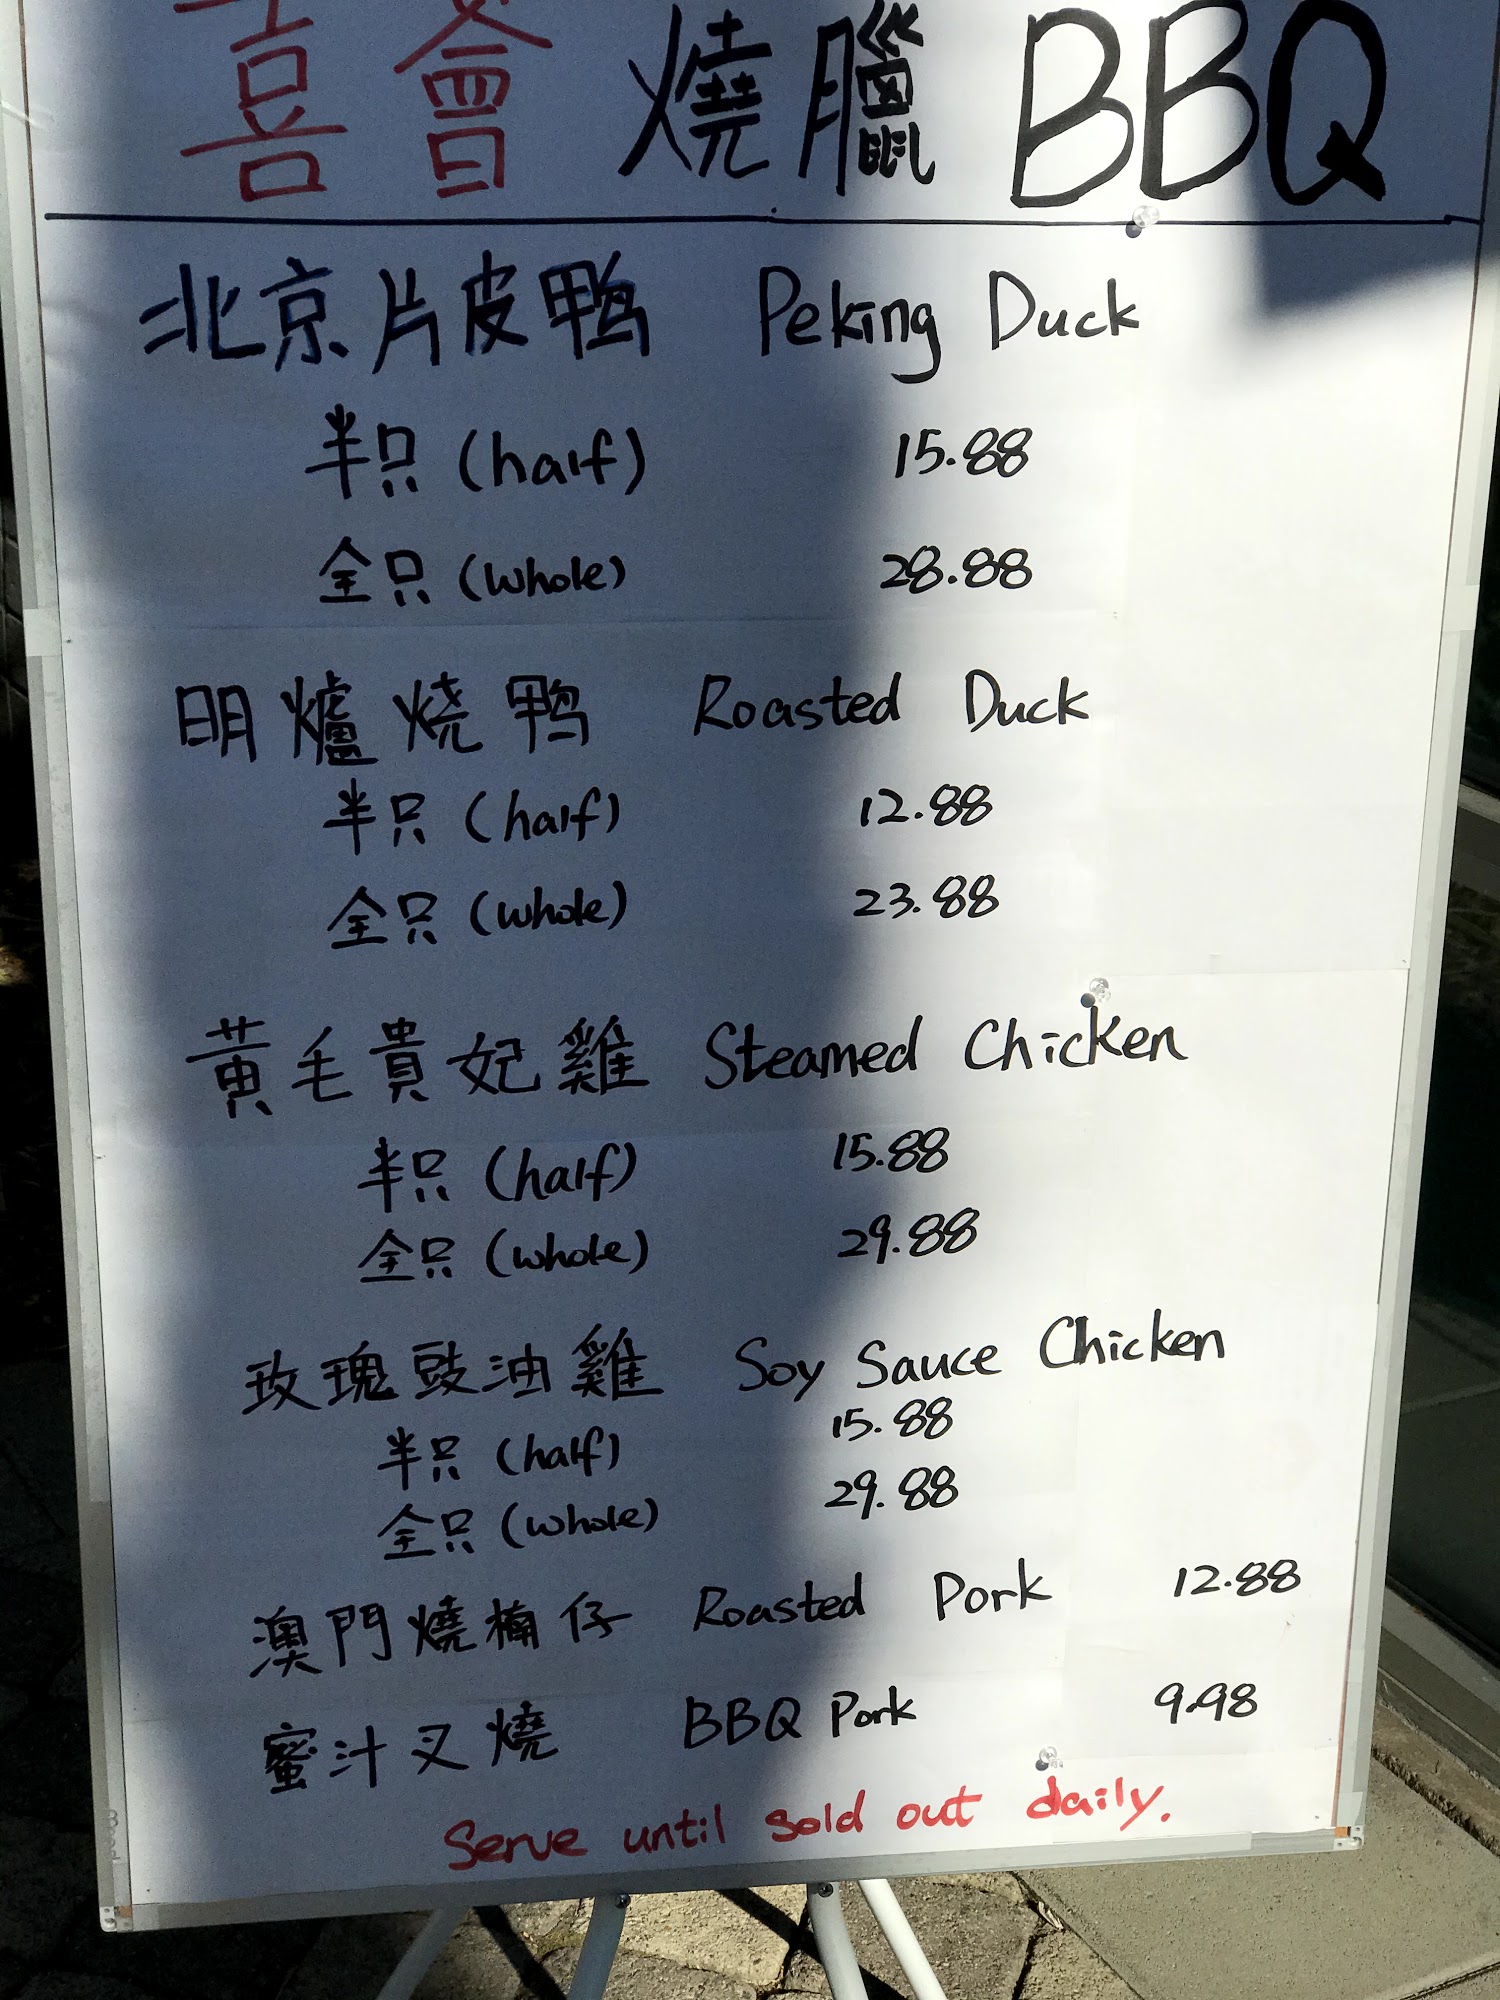 喜會 燒臘 BBQ
北京片皮鸭 Peking Duck
半只 (half) 15.88
全只 (whole) 28.88
明爐烧鸭 Roasted Duck
半只 (half) 12.88
全只 (whole) 23.88
黃毛貴妃雞 Steamed Chicken
半只 (half) 15.88
全只 (whole) 29.88
玫瑰豉油雞 Soy Sauce Chicken
半只 (half) 15.88
全只 (whole) 29.88
澳門燒楠仔 Roasted Pork 12.88
蜜汁叉燒 BBQ Pork 9.98
Serve until sold out daily.